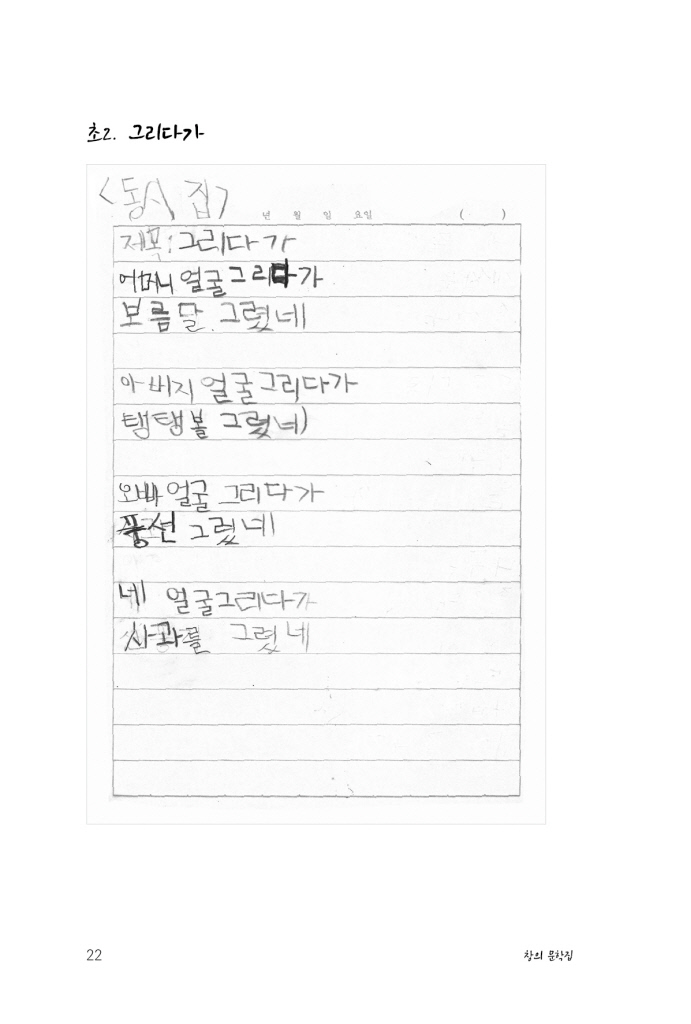 초2. 그리다가
<동시 집>
년 월 일 요일 ( )
제목: 그리다가
어머니 얼굴 그리다가
보름달 그렸네
아버지 얼굴 그리다가
탱탱볼 그렸네
오빠 얼굴 그리다가
풍선 그렸네
네 얼굴 그리다가
사과를 그렸네
22
창의 문학집